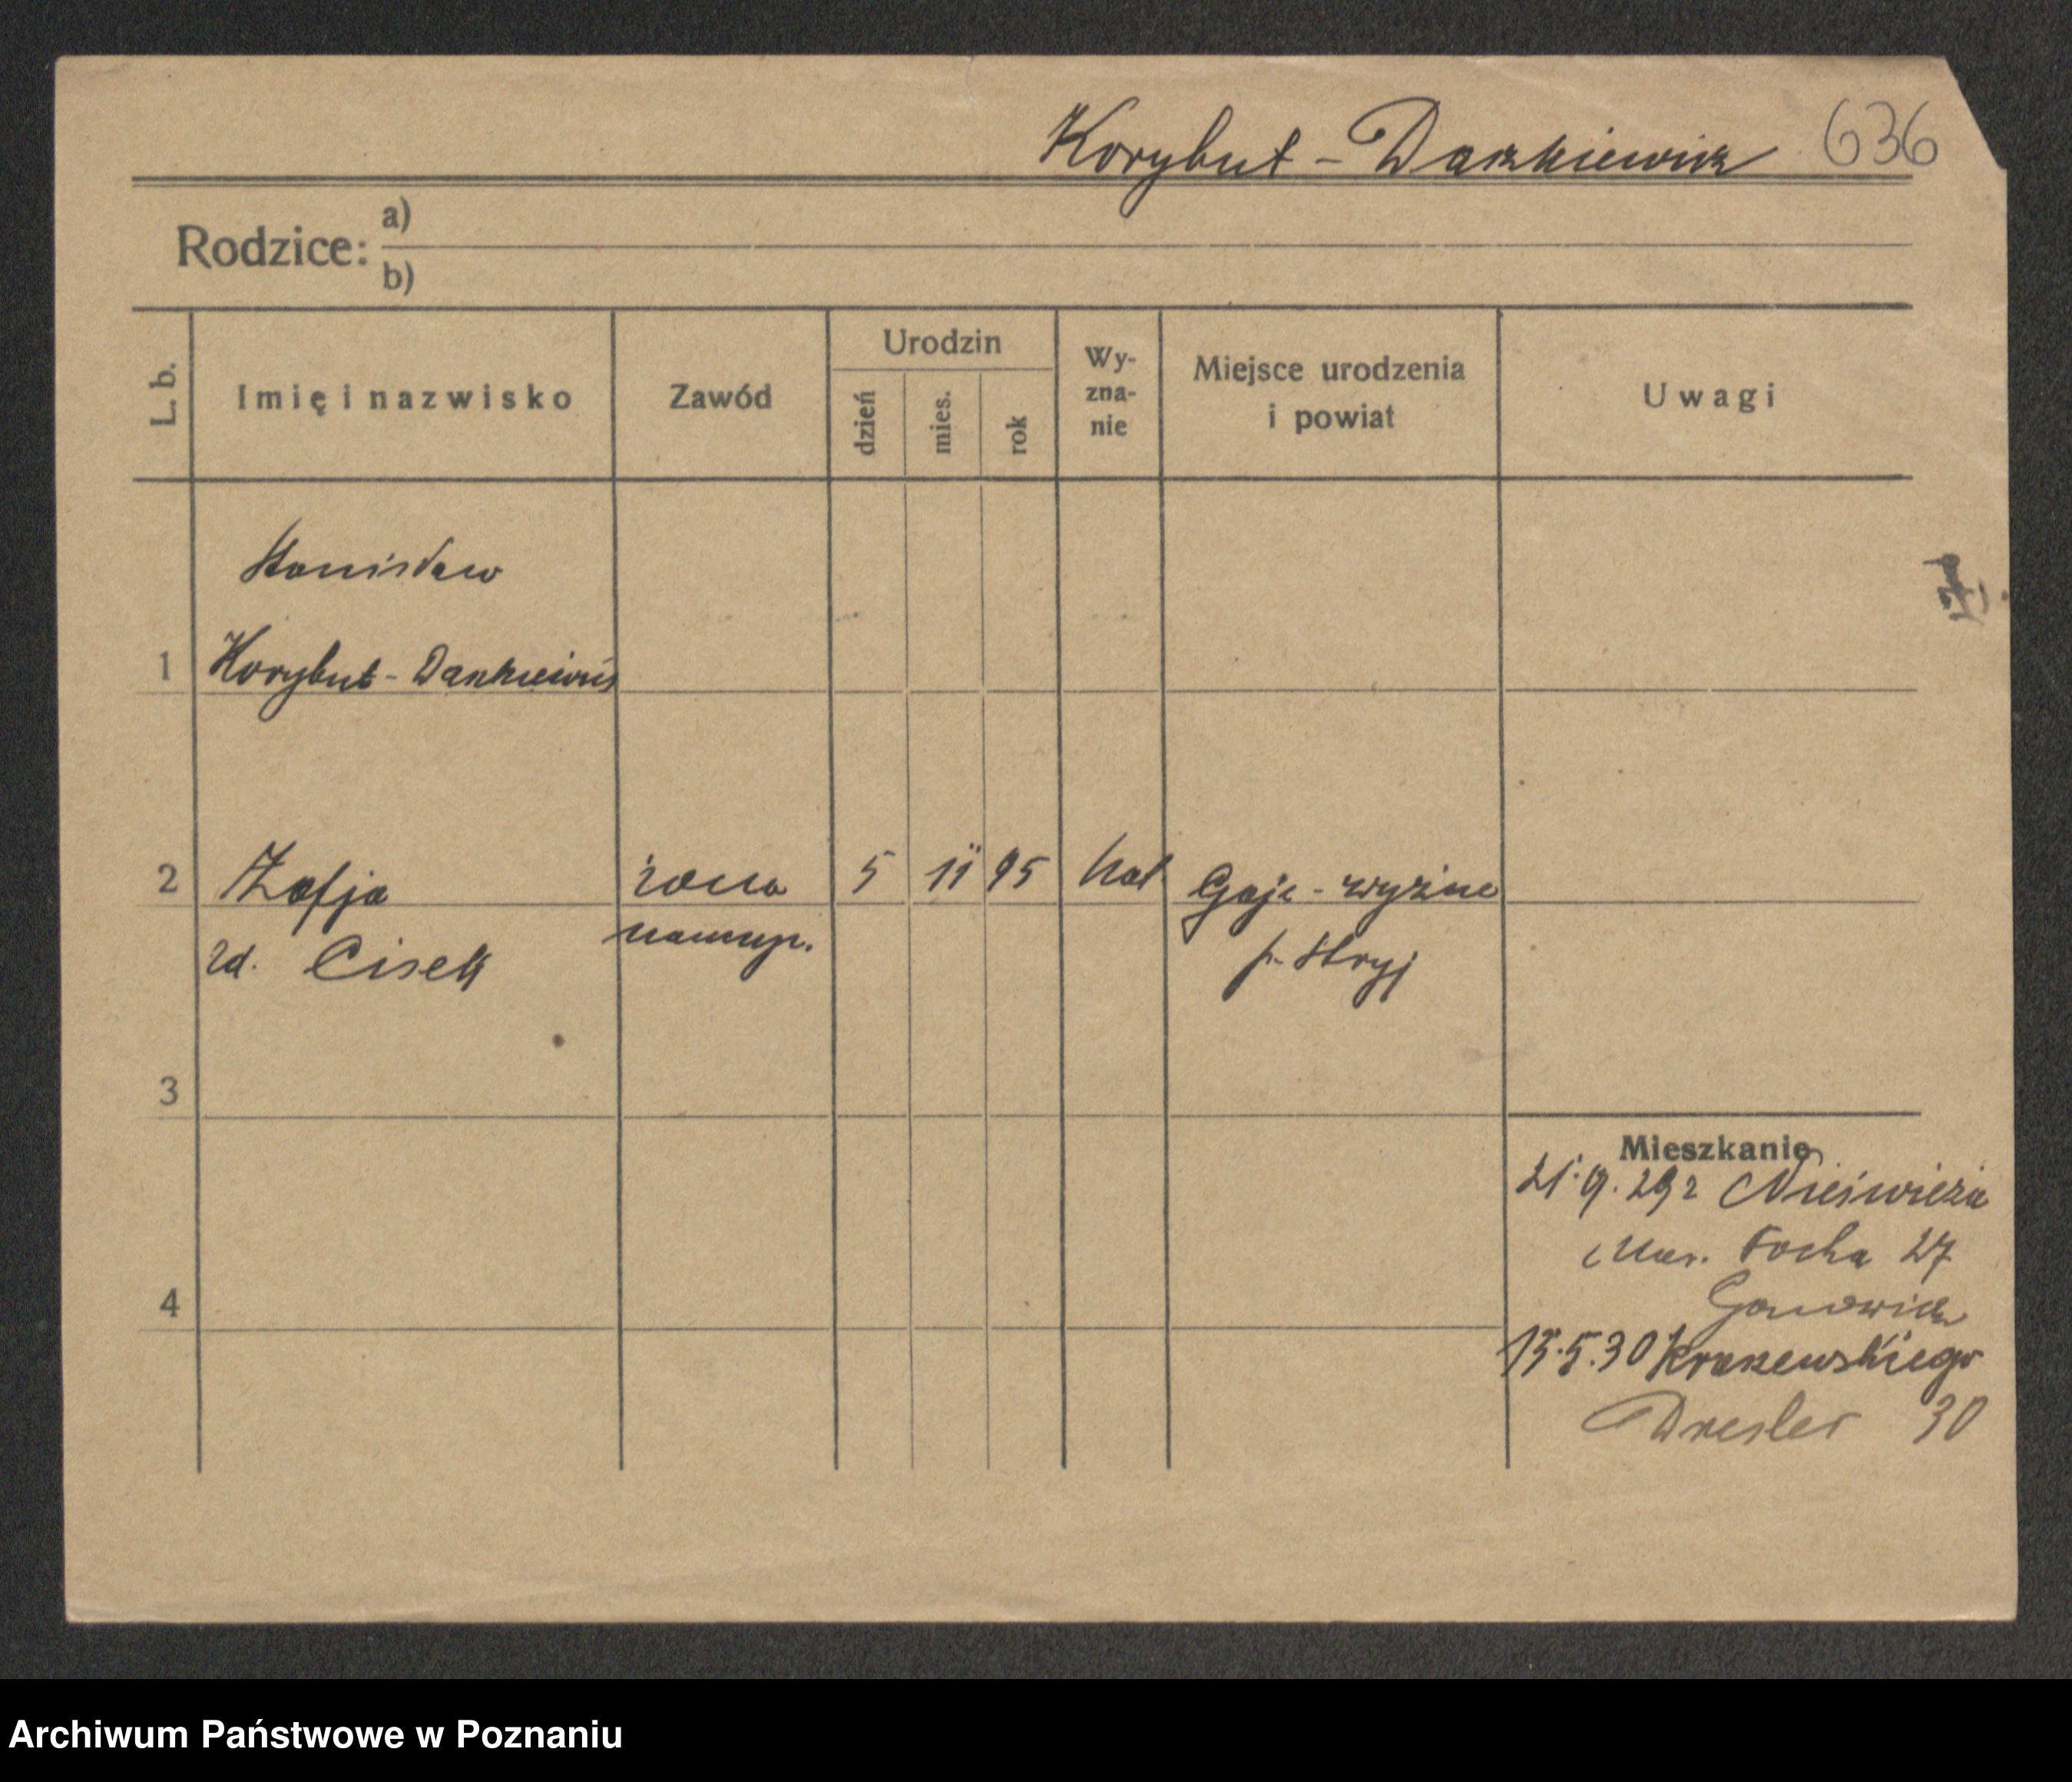 Korybut - Daszkiewicz 636
Rodzice: a)
b)
L. b.
Imię i nazwisko
Zawód
Urodzin
dzień
mies.
rok
Wy-
zna-
nie
Miejsce urodzenia
i powiat
Uwagi
Stanisław
1 Korybut - Daszkiewicz
2 Zofja żona 5 11 95 kat Gaje - wyżne
zd. Cisek nauczyc. p. Stryj
3
4
Mieszkanie
21.9.29 z Nieświeża
Mar. Focha 27
15.5.30 Kraszewskiego
Dresler 30
Archiwum Państwowe w Poznaniu